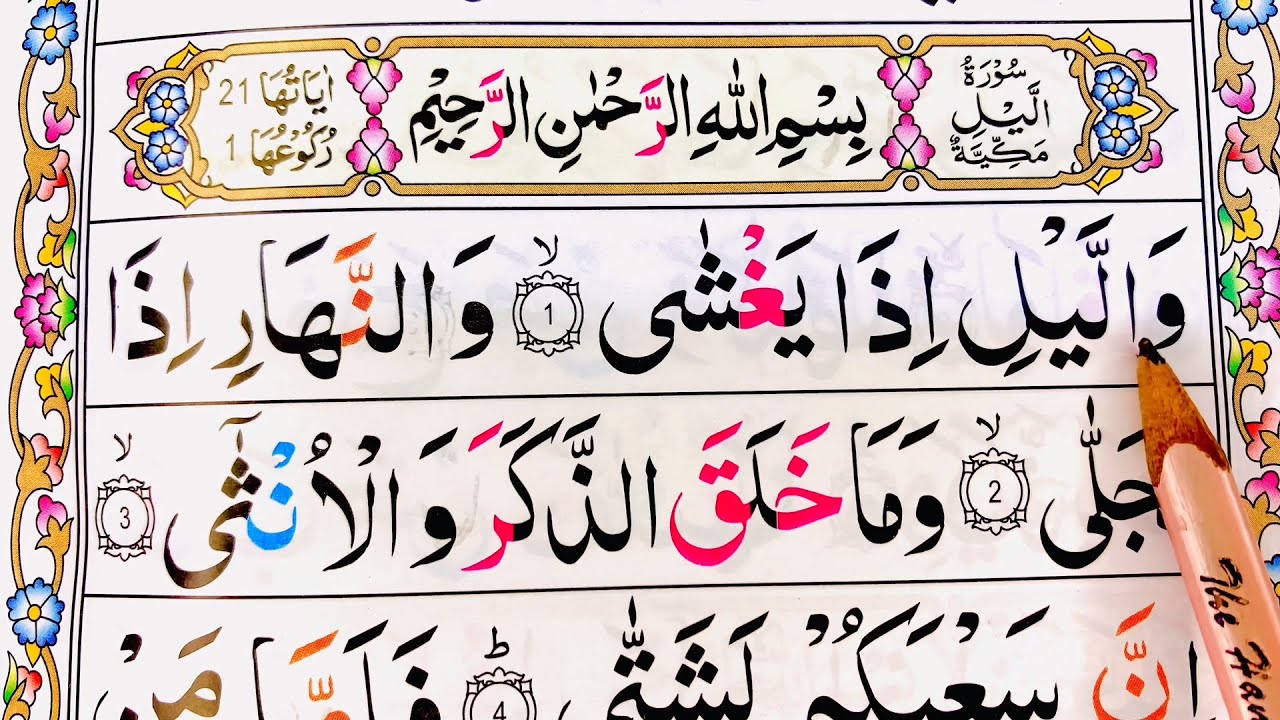 سُوْرَةُ الَّيْلِ مَكِّيَّةٌ
بِسْمِ اللهِ الرَّحْمٰنِ الرَّحِيْمِ
اٰيَاتُهَا 21
رُكُوْعُهَا 1
وَالَّيْلِ اِذَا يَغْشٰى ۙ 1 وَالنَّهَارِ اِذَا
تَجَلّٰى ۙ 2 وَمَا خَلَقَ الذَّكَرَ وَالْاُنْثٰٓى ۙ 3
اِنَّ سَعْيَكُمْ لَشَتّٰى ؕ 4 فَاَمَّا مَنْ
The